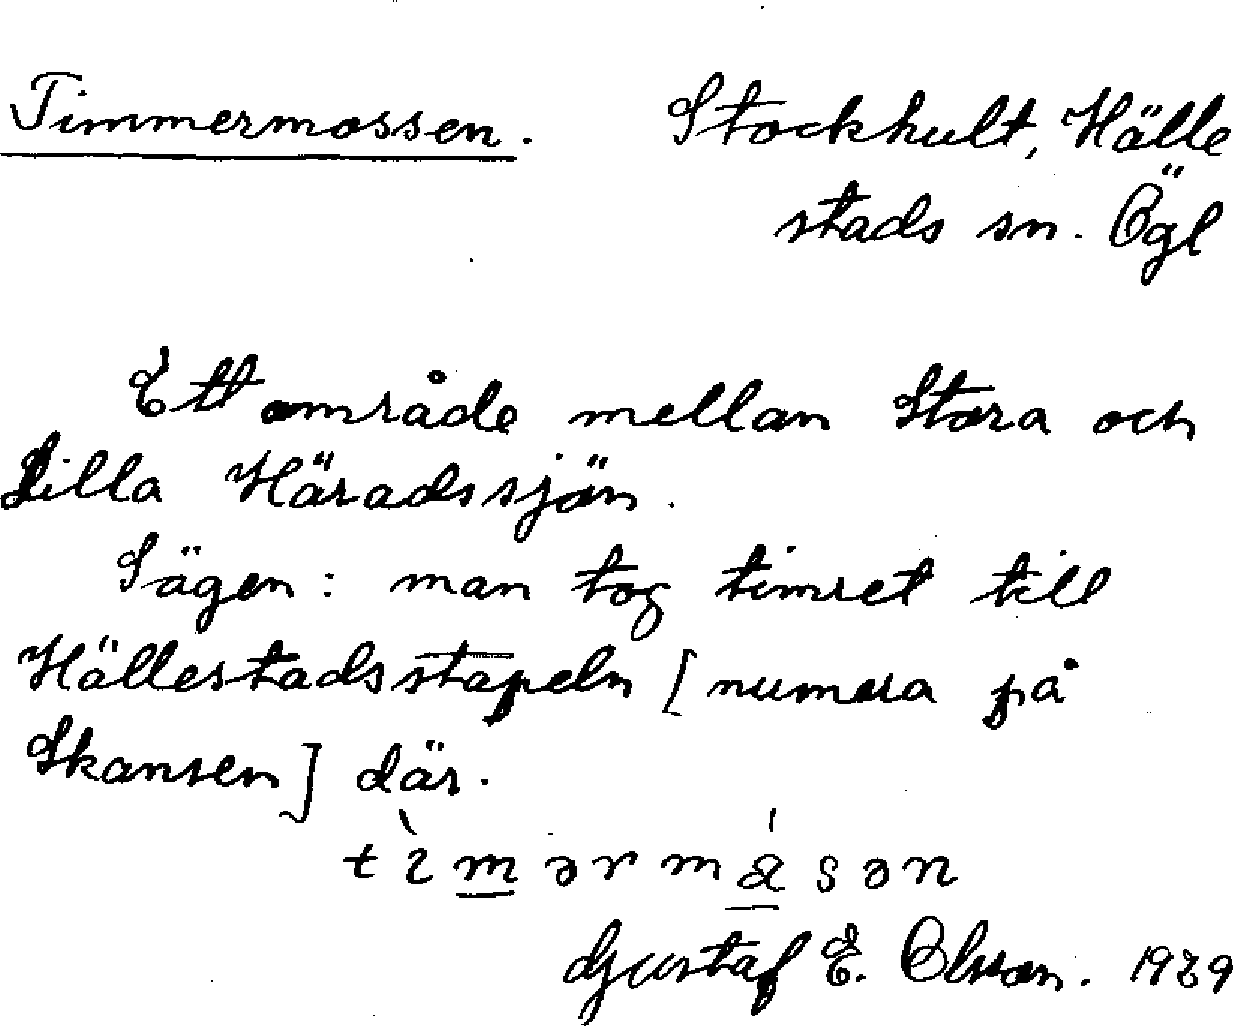 Timmermossen. Stockhult, Hälle
stads sn. Ögl
Ett område mellan Stora och
Lilla Häradssjön.
Sägen: man tog timret till
Hällestadsstapeln [numera på
Skansen] där.
Gustaf E. Olsson. 1939